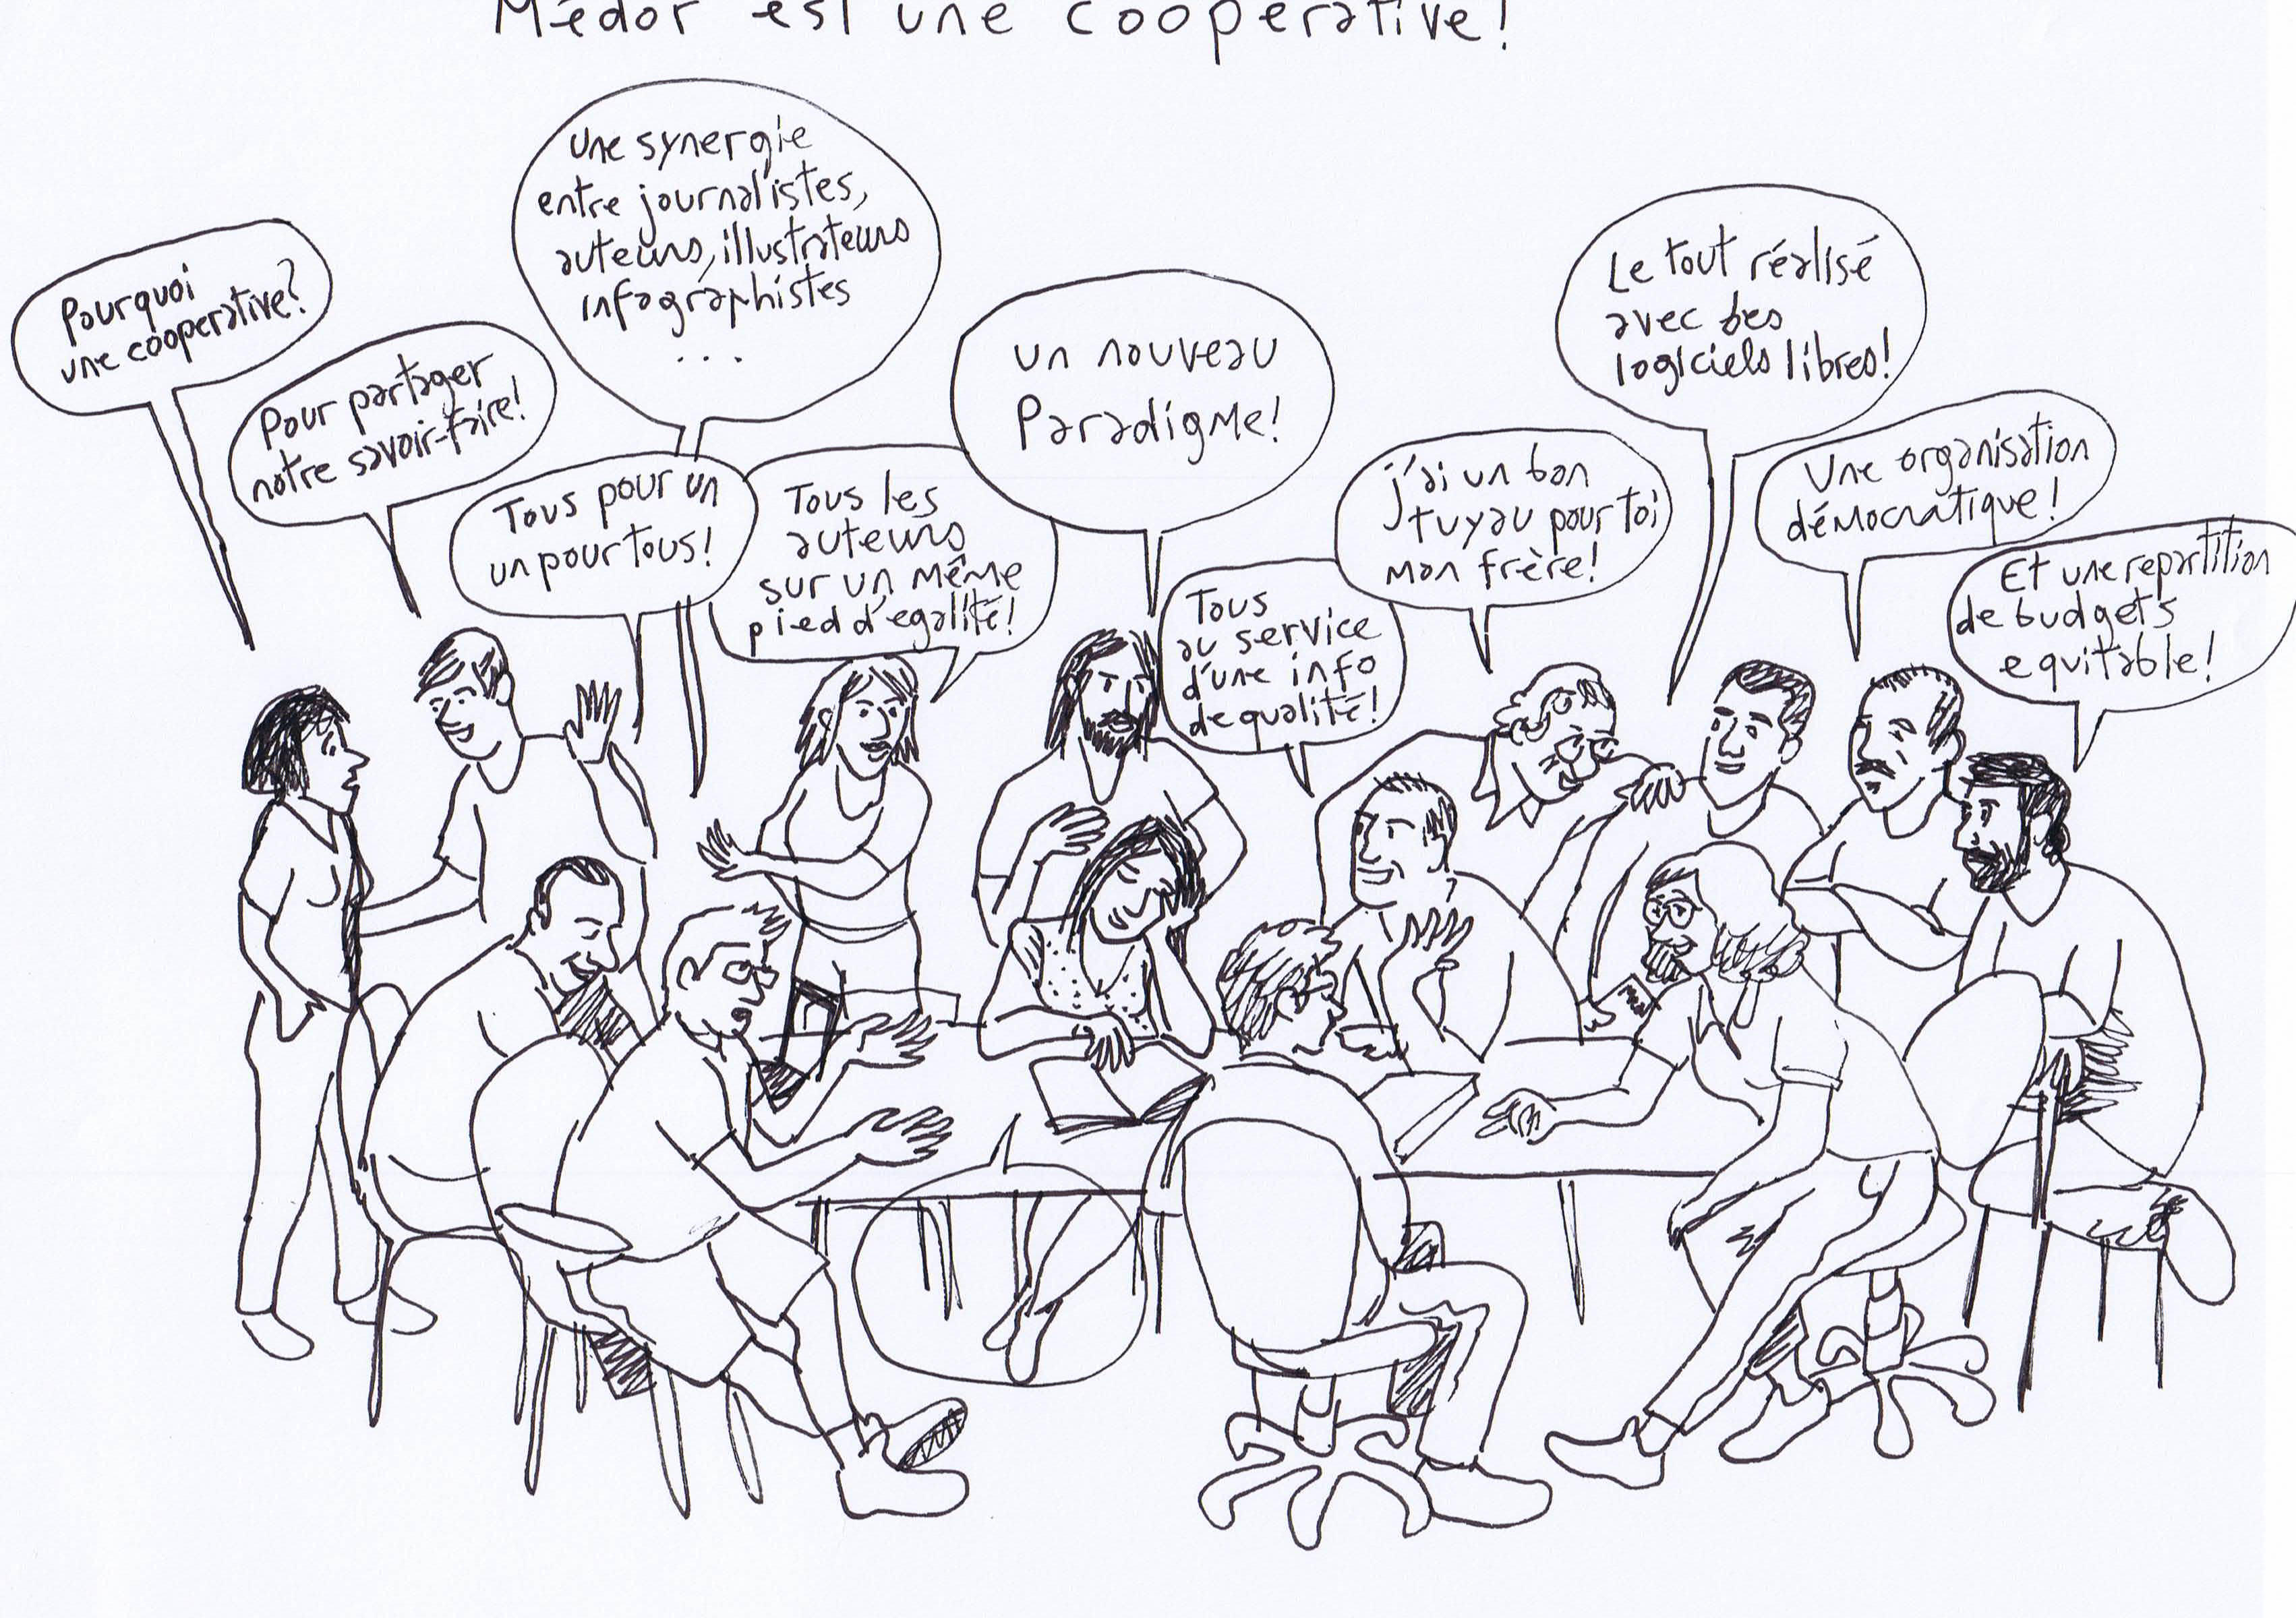 Médor est une cooperative!
Pourquoi
une cooperative?
Pour partager
notre savoir-faire!
Une synergie
entre journalistes,
auteurs, illustrateurs
infographistes
...
Tous pour un
un pour tous!
Tous les
auteurs
sur un même
pied d'egalité!
un nouveau
Paradigme!
Tous
au service
d'une info
de qualité!
j'ai un bon
tuyau pour toi
mon frère!
Le tout réalisé
avec des
logiciels libres!
Une organisation
démocratique!
Et une repartition
de budgets
equitable!